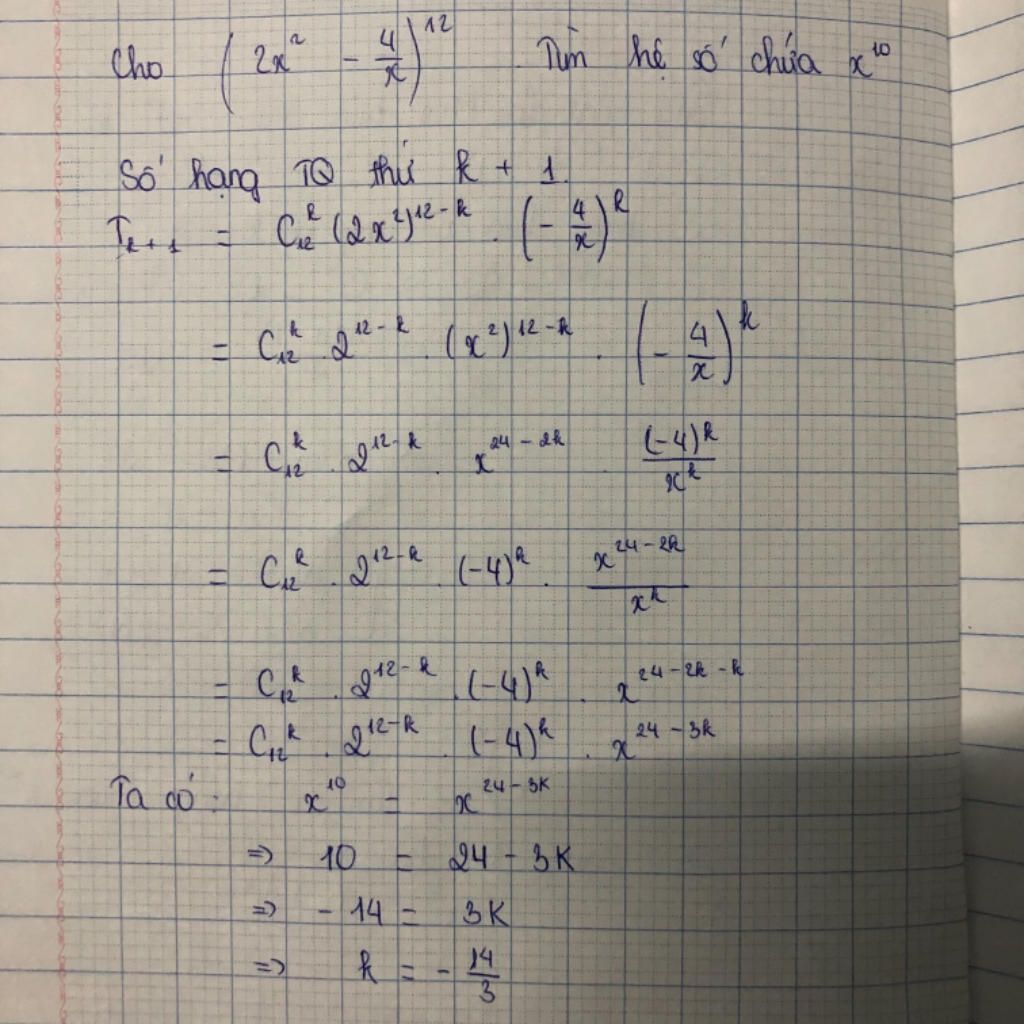 Cho (2x² - 4/x)¹² . Tìm hệ số chứa x¹⁰
Số hạng TQ thứ k + 1
Tₖ₊₁ = C₁₂ᵏ (2x²)¹²⁻ᵏ . (- 4/x)ᵏ
= C₁₂ᵏ . 2¹²⁻ᵏ . (x²)¹²⁻ᵏ . (- 4/x)ᵏ
= C₁₂ᵏ . 2¹²⁻ᵏ . x²⁴⁻²ᵏ . (-4)ᵏ/xᵏ
= C₁₂ᵏ . 2¹²⁻ᵏ . (-4)ᵏ . x²⁴⁻²ᵏ/xᵏ
= C₁₂ᵏ . 2¹²⁻ᵏ . (-4)ᵏ . x²⁴⁻²ᵏ⁻ᵏ
= C₁₂ᵏ . 2¹²⁻ᵏ . (-4)ᵏ . x²⁴⁻³ᵏ
Ta có : x¹⁰ = x²⁴⁻³ᴷ
=> 10 = 24 - 3K
=> - 14 = 3K
=> k = - 14/3